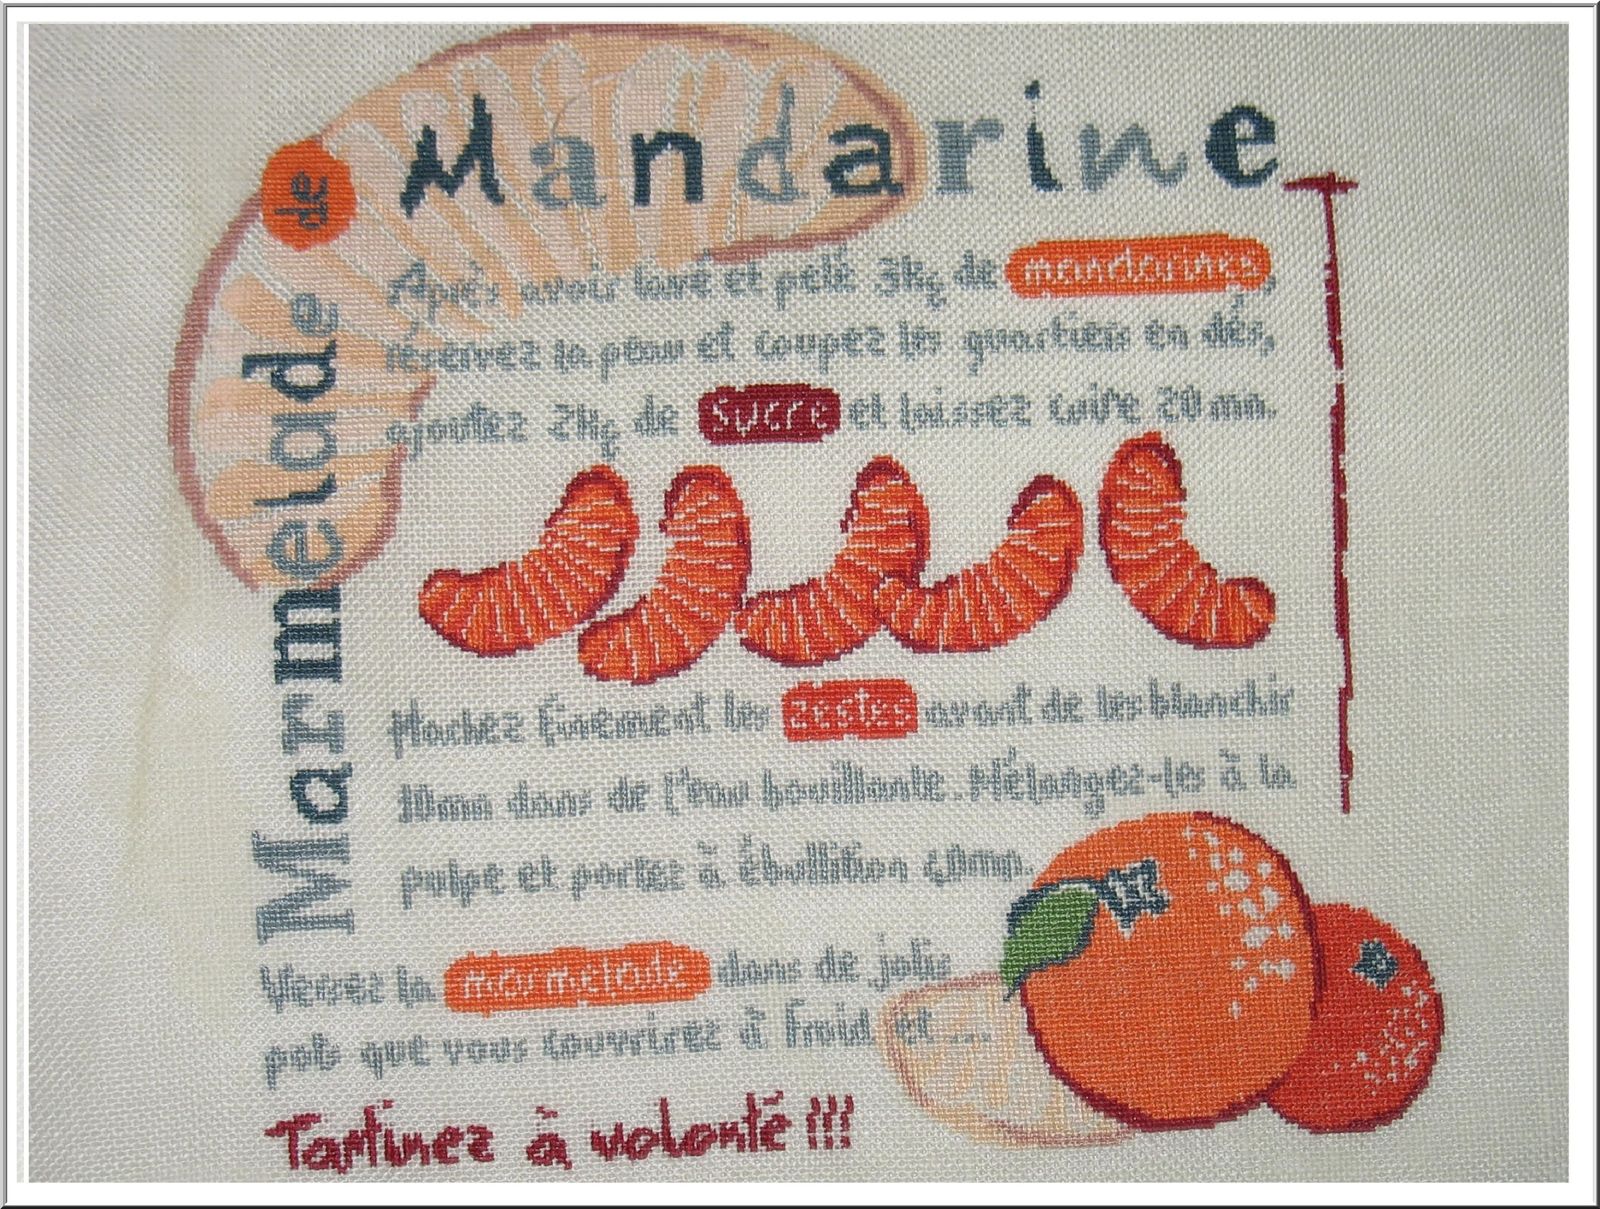 Marmelade
de
Mandarine
Après avoir lavé et pelé 3kg de mandarines,
réservez la peau et coupez les quartiers en dés,
ajoutez 2kg de sucre et laissez cuire 20mn.
Hachez finement les zestes avant de les blanchir
10mn dans de l'eau bouillante. Mélangez-les à la
pulpe et portez à ébullition 40mn.
Versez la marmelade dans de jolis
pots que vous couvrirez à froid et ...
Tartinez à volonté !!!